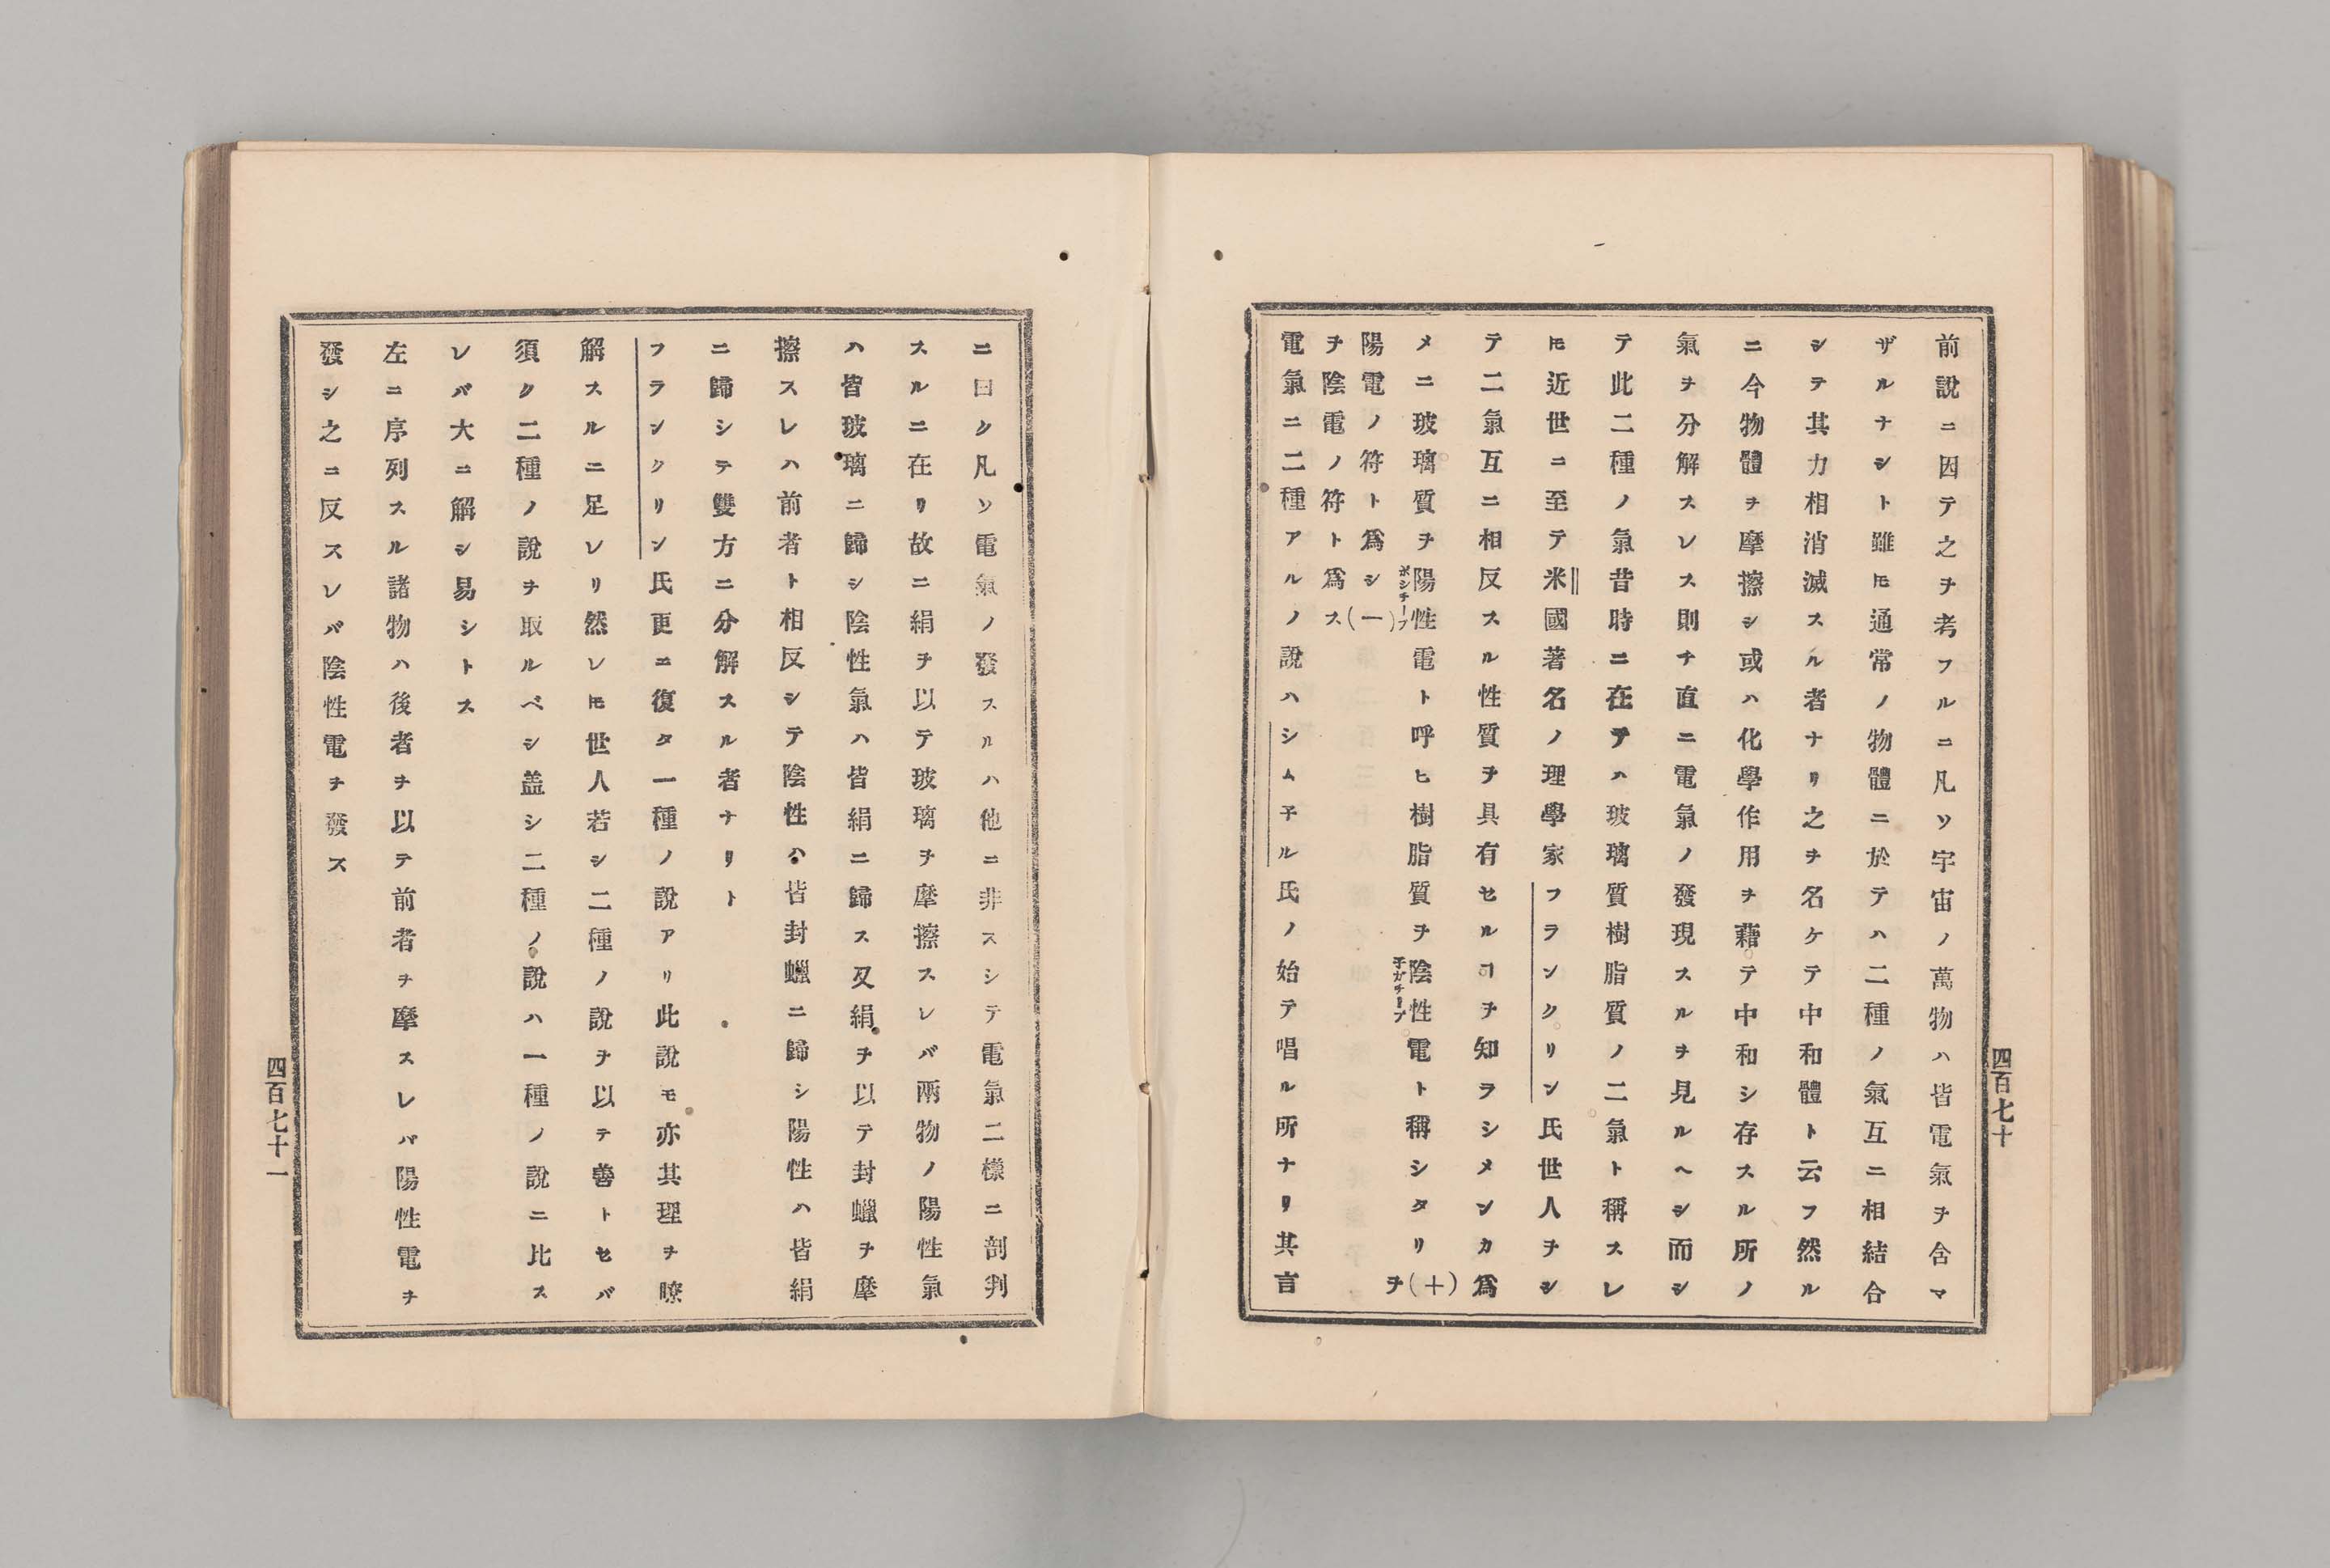 前説ニ因テ之ヲ考フルニ凡ソ宇宙ノ萬物ハ皆電氣ヲ含マ
ザルナシト雖𪜈通常ノ物體ニ於テハ二種ノ氣互ニ相結合
シテ其力相消滅スル者ナリ之ヲ名ケテ中和體ト云フ然ル
ニ今物體ヲ摩擦シ或ハ化學作用ヲ藉テ中和シ存スル所ノ
氣ヲ分解スレス則チ直ニ電氣ノ發現スルヲ見ルヘシ而シ
テ此二種ノ氣昔時ニ在テハ玻璃質樹脂質ノ二氣ト稱スレ
𪜈近世ニ至テ米國著名ノ理學家フランクリン氏世人ヲシ
テ二氣互ニ相反スル性質ヲ具有セルヿヲ知ラシメンカ爲
メニ玻璃質ヲ陽性電ト呼ヒ樹脂質ヲ陰性電ト稱シタリ(十)ヲ
ポシチーフ
子ガチーブ
陽電ノ符ト爲シ(一)
ヲ陰電ノ符ト爲ス
電氣ニ二種アルノ說ハシム子ル氏ノ始テ唱ル所ナリ其言
四百七十
ニ曰ク凡ソ電氣ノ發スルハ他ニ非スシテ電氣二樣ニ剖判
スルニ在リ故ニ絹ヲ以テ玻璃ヲ摩擦スレバ兩物ノ陽性氣
ハ皆玻璃ニ歸シ陰性氣ハ皆絹ニ歸ス又絹ヲ以テ封蠟ヲ摩
擦スレハ前者ト相反シテ陰性ハ皆封蠟ニ歸シ陽性ハ皆絹
ニ歸シテ雙方ニ分解スル者ナリト
フランクリン氏更ニ復タ一種ノ說アリ此說モ亦其理ヲ瞭
解スルニ足レリ然レ𪜈世人若シ二種ノ說ヲ以テ善トセバ
須ク二種ノ說ヲ取ルベシ盖シ二種ノ說ハ一種ノ說ニ比ス
レバ大ニ解シ易シトス
左ニ序列スル諸物ハ後者ヲ以テ前者ヲ摩スレバ陽性電ヲ
發シ之ニ反スレバ陰性電ヲ發ス
四百七十一